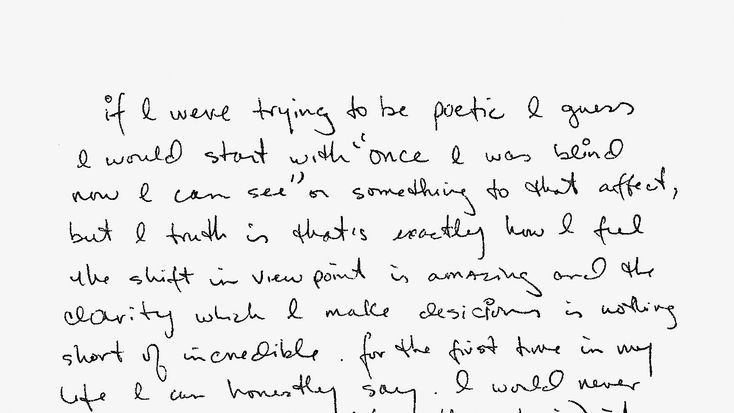 if I were trying to be poetic I guess
I would start with "once I was blind
now I can see" or something to that affect,
but I truth is that's exactly how I feel
the shift in view point is amazing and the
clarity which I make desicions is nothing
short of incredible. for the first time in my
life I can honestly say. I would never